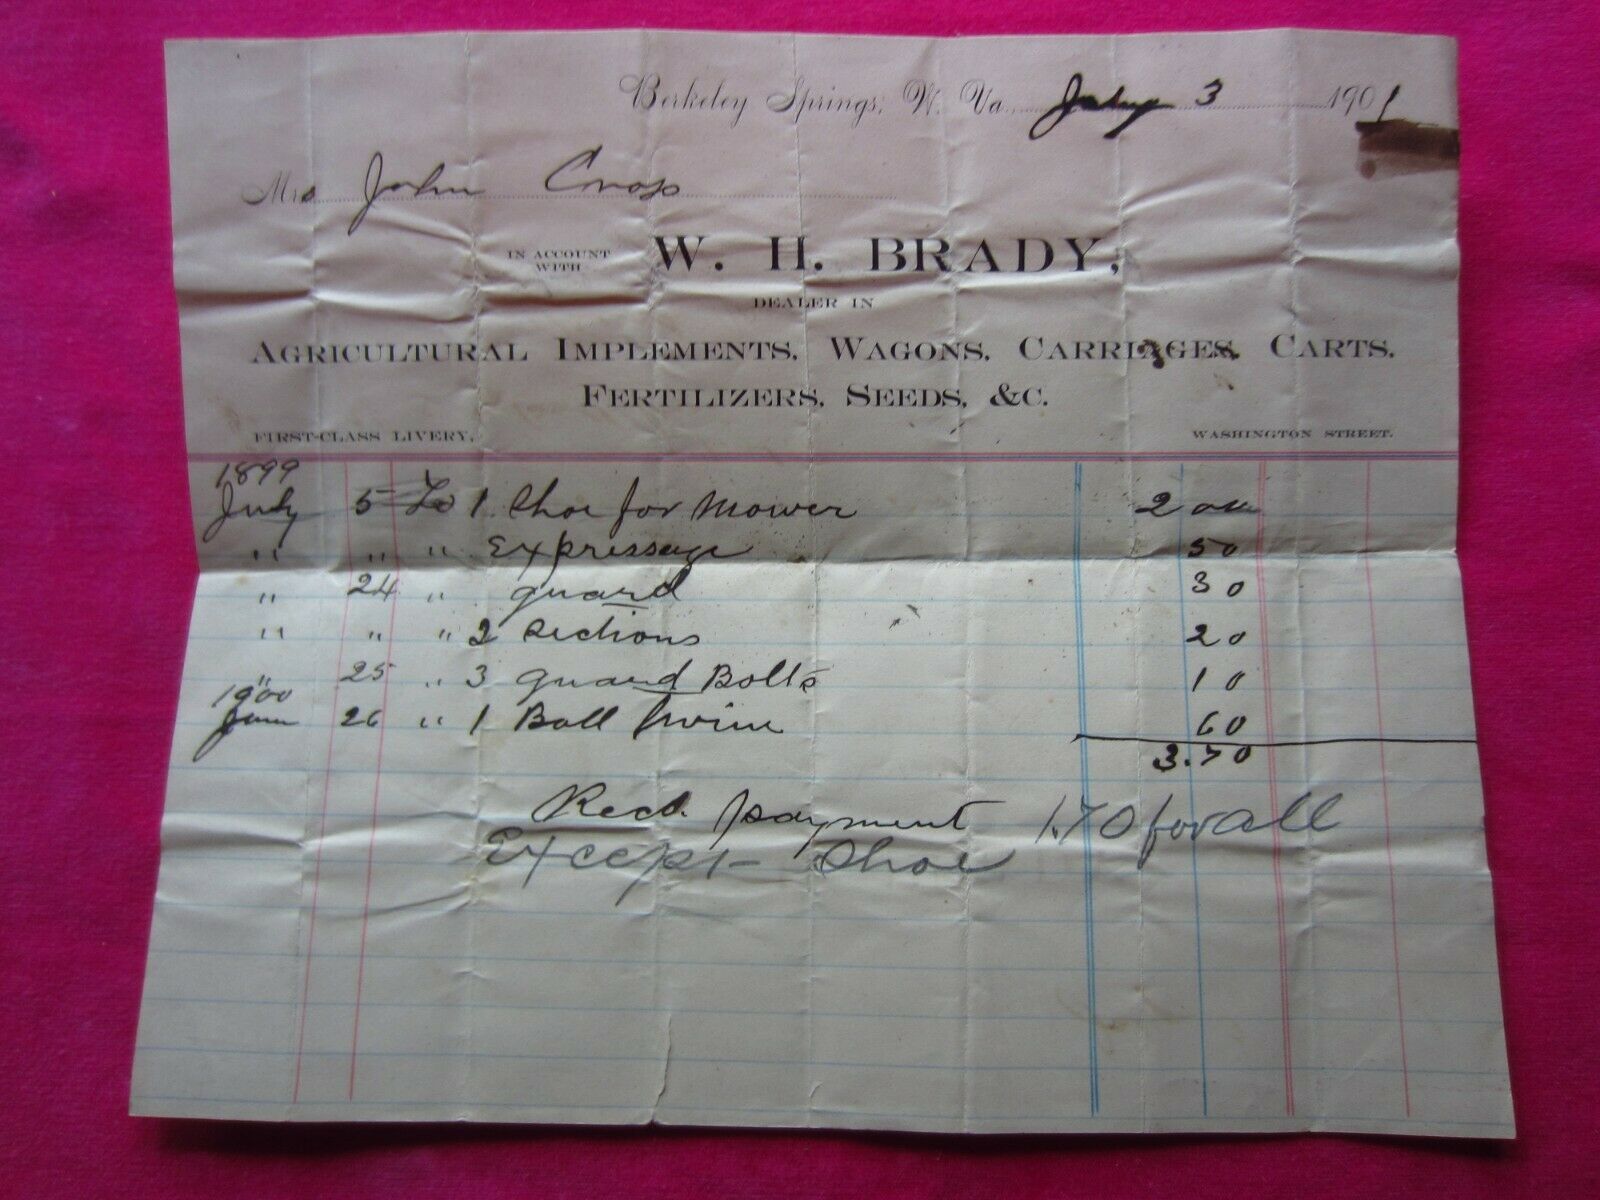 Berkeley Springs, W. Va. July 3 1901
Mrs John Cross
IN ACCOUNT WITH W. H. BRADY,
DEALER IN
AGRICULTURAL IMPLEMENTS, WAGONS, CARRIAGES, CARTS,
FERTILIZERS, SEEDS, &C.
FIRST-CLASS LIVERY, WASHINGTON STREET.
1899
July 5 To 1 Shoe for Mower 2 00
" " " Expressage 50
" 24 " guard 30
" " " 2 Sections 20
" 25 " 3 guard Bolts 10
1900
June 26 " 1 Ball Twine 60
3.70
Recd. payment 1.70 for all
Except Shoe